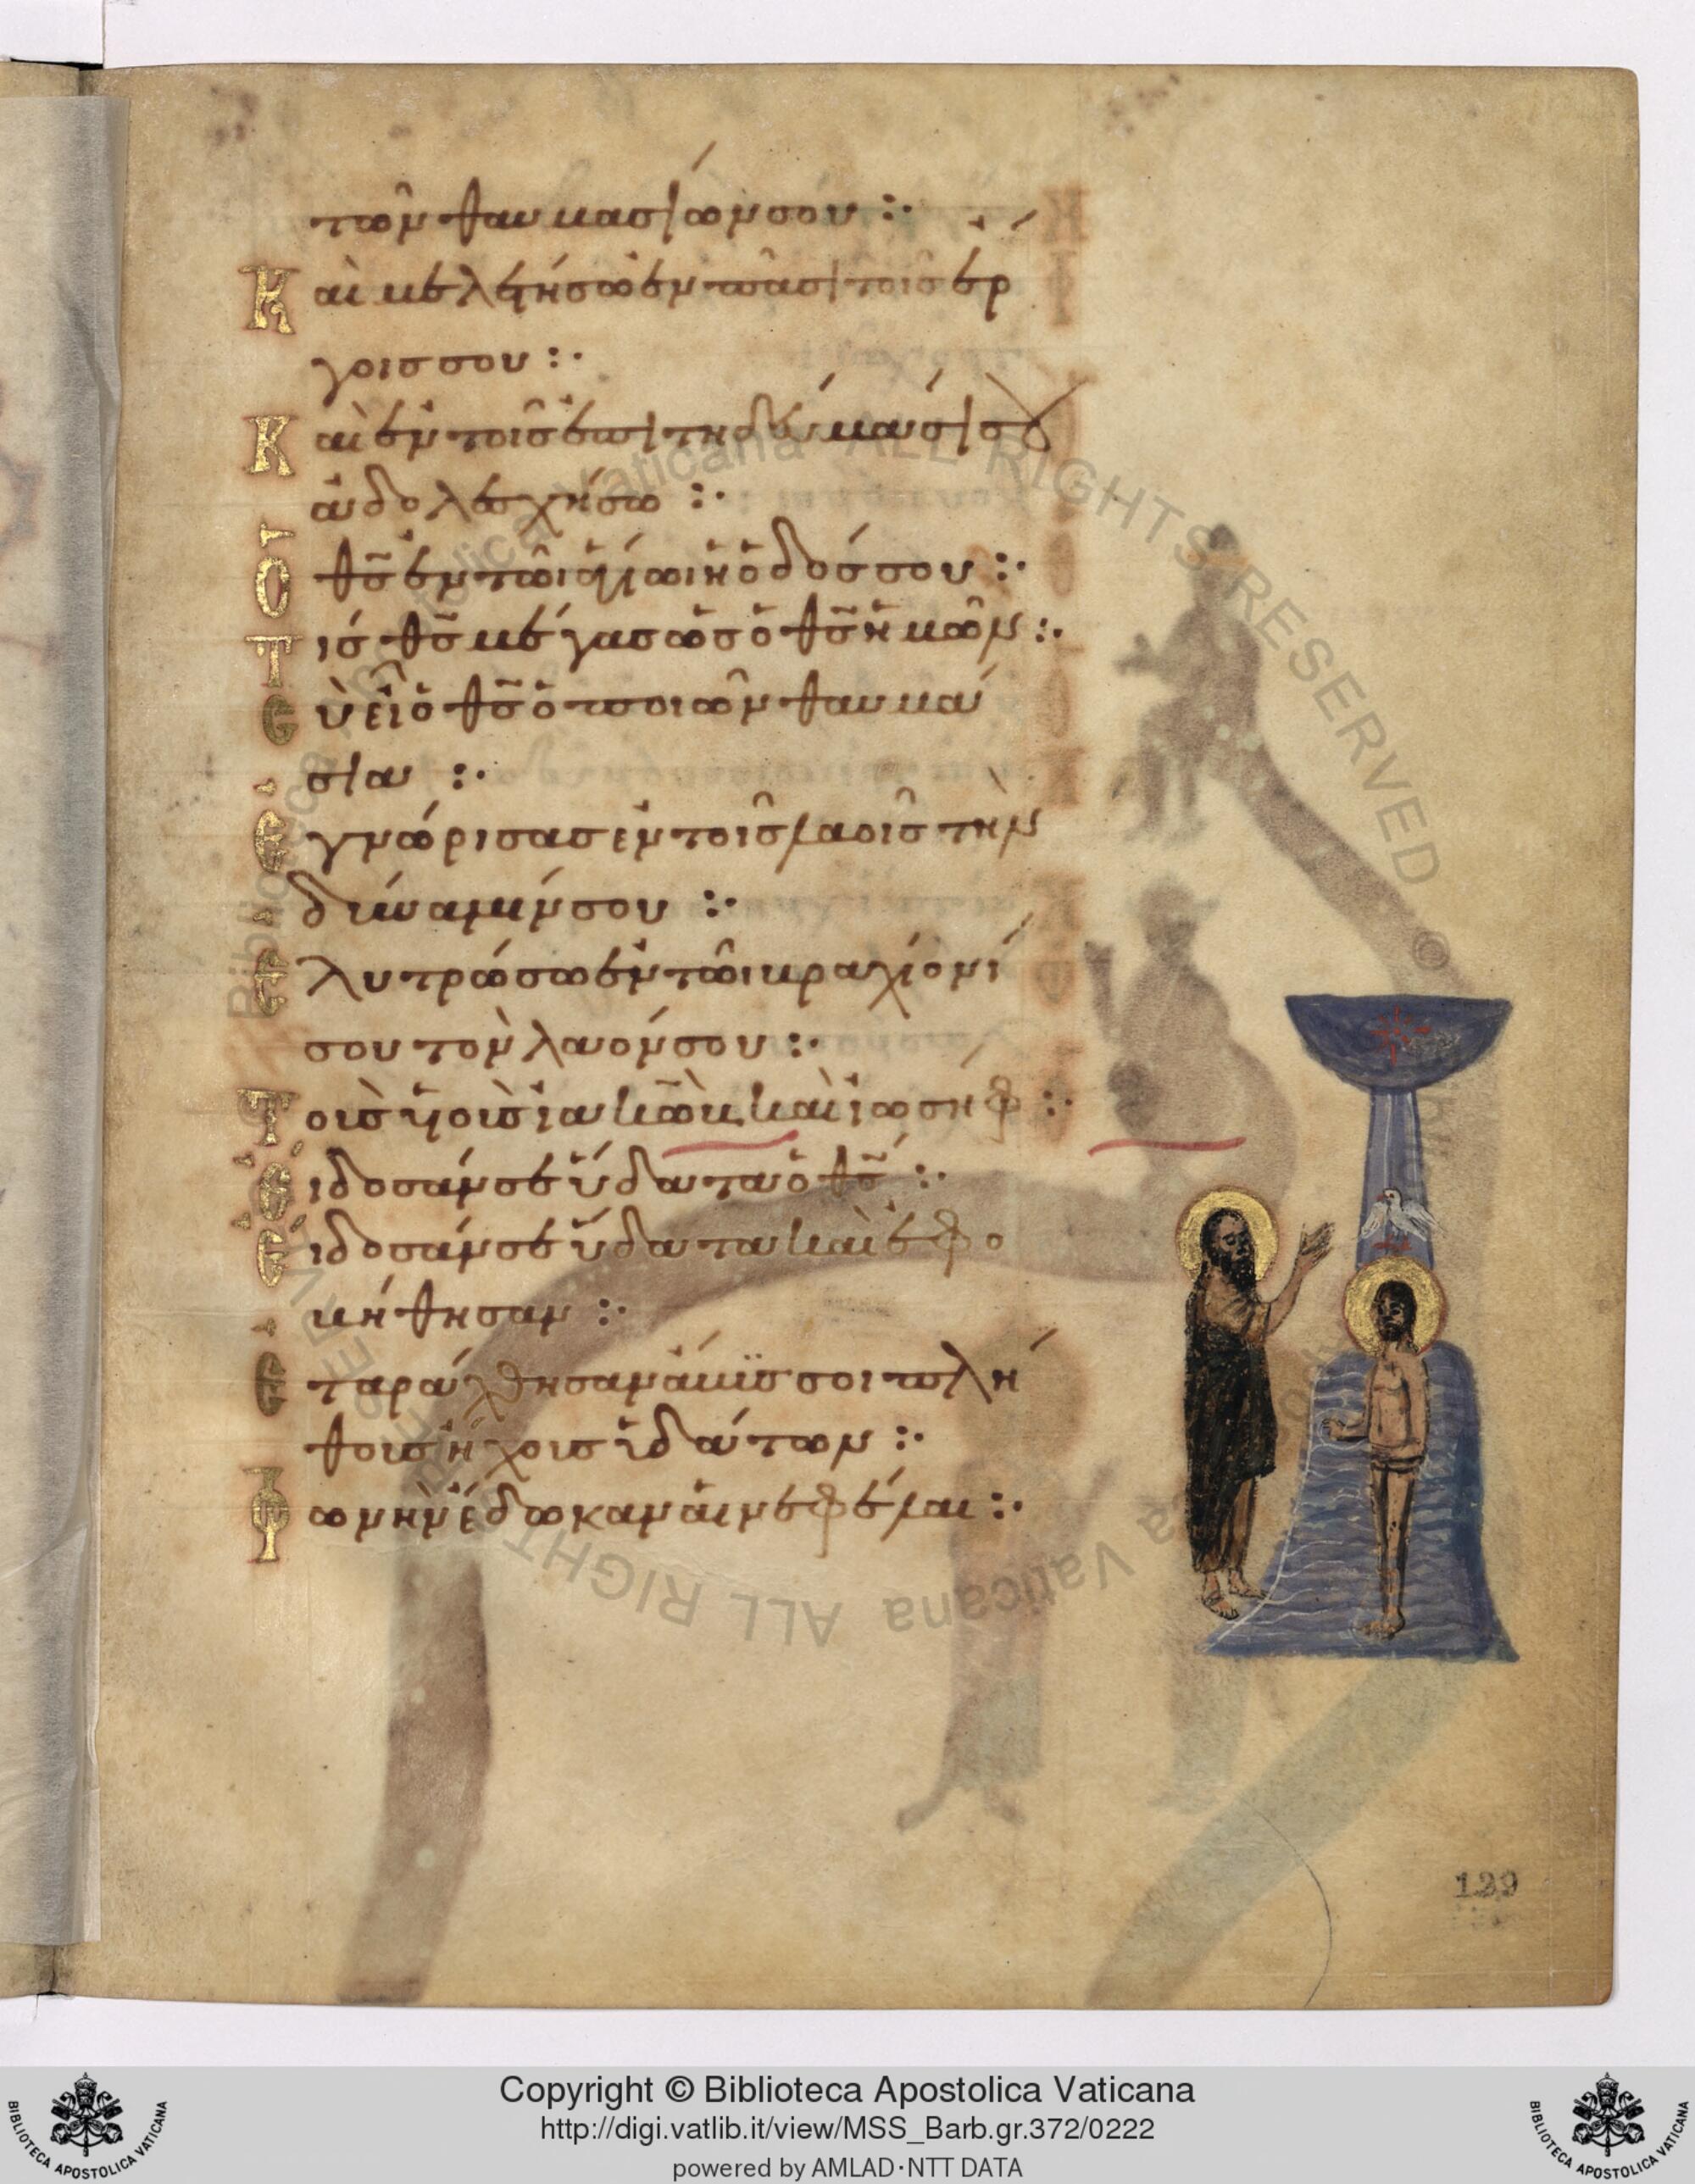 τῶν θαυμασίων σου :·
Καὶ μελετήσω ἐν πᾶσι τοῖς ἔρ
γοις σου :·
Καὶ ἐν τοῖς ἐπιτηδεύμασί σου
ἀδολεσχήσω :·
Ὁ θς ἐν τῶι ἁγίωι ἡ ὁδός σου :·
Τίς θς μέγας ὡς ὁ θς ἡμῶν :·
Σὺ εἶ ὁ θς ὁ ποιῶν θαυμά
σια :·
Ἐγνώρισας ἐν τοῖς λαοῖς τὴν
δύναμίν σου :·
Ἐλυτρώσω ἐν τῶι βραχίονί
σου τὸν λαόν σου :·
Τοὺς υἱοὺς ἰακὼβ καὶ ἰωσήφ :·
Εἴδοσάν σε ὕδατα ὁ θς :·
Εἴδοσάν σε ὕδατα καὶ ἐφο
βήθησαν :·
Ἐταράχθησαν ἄβυσσοι πλή
θους ἤχους ὑδάτων :·
Φωνὴν ἔδωκαν αἱ νεφέλαι :·
129
Biblioteca Apostolica Vaticana ALL RIGHTS RESERVED ©
Copyright © Biblioteca Apostolica Vaticana
http://digi.vatlib.it/view/MSS_Barb.gr.372/0222
powered by AMLAD·NTT DATA
BIBLIOTECA APOSTOLICA VATICANA
BIBLIOTECA APOSTOLICA VATICANA